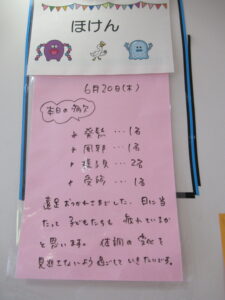 ほけん
6月20日(木)
本日の病欠
発熱…1名
風邪…1名
揺…2名
受診…1名
遠足おつかれさまでした。日に当
たって子どもたちも疲れているか
と思います。体調の変化を
見逃さないよう過ごしていきたいです。